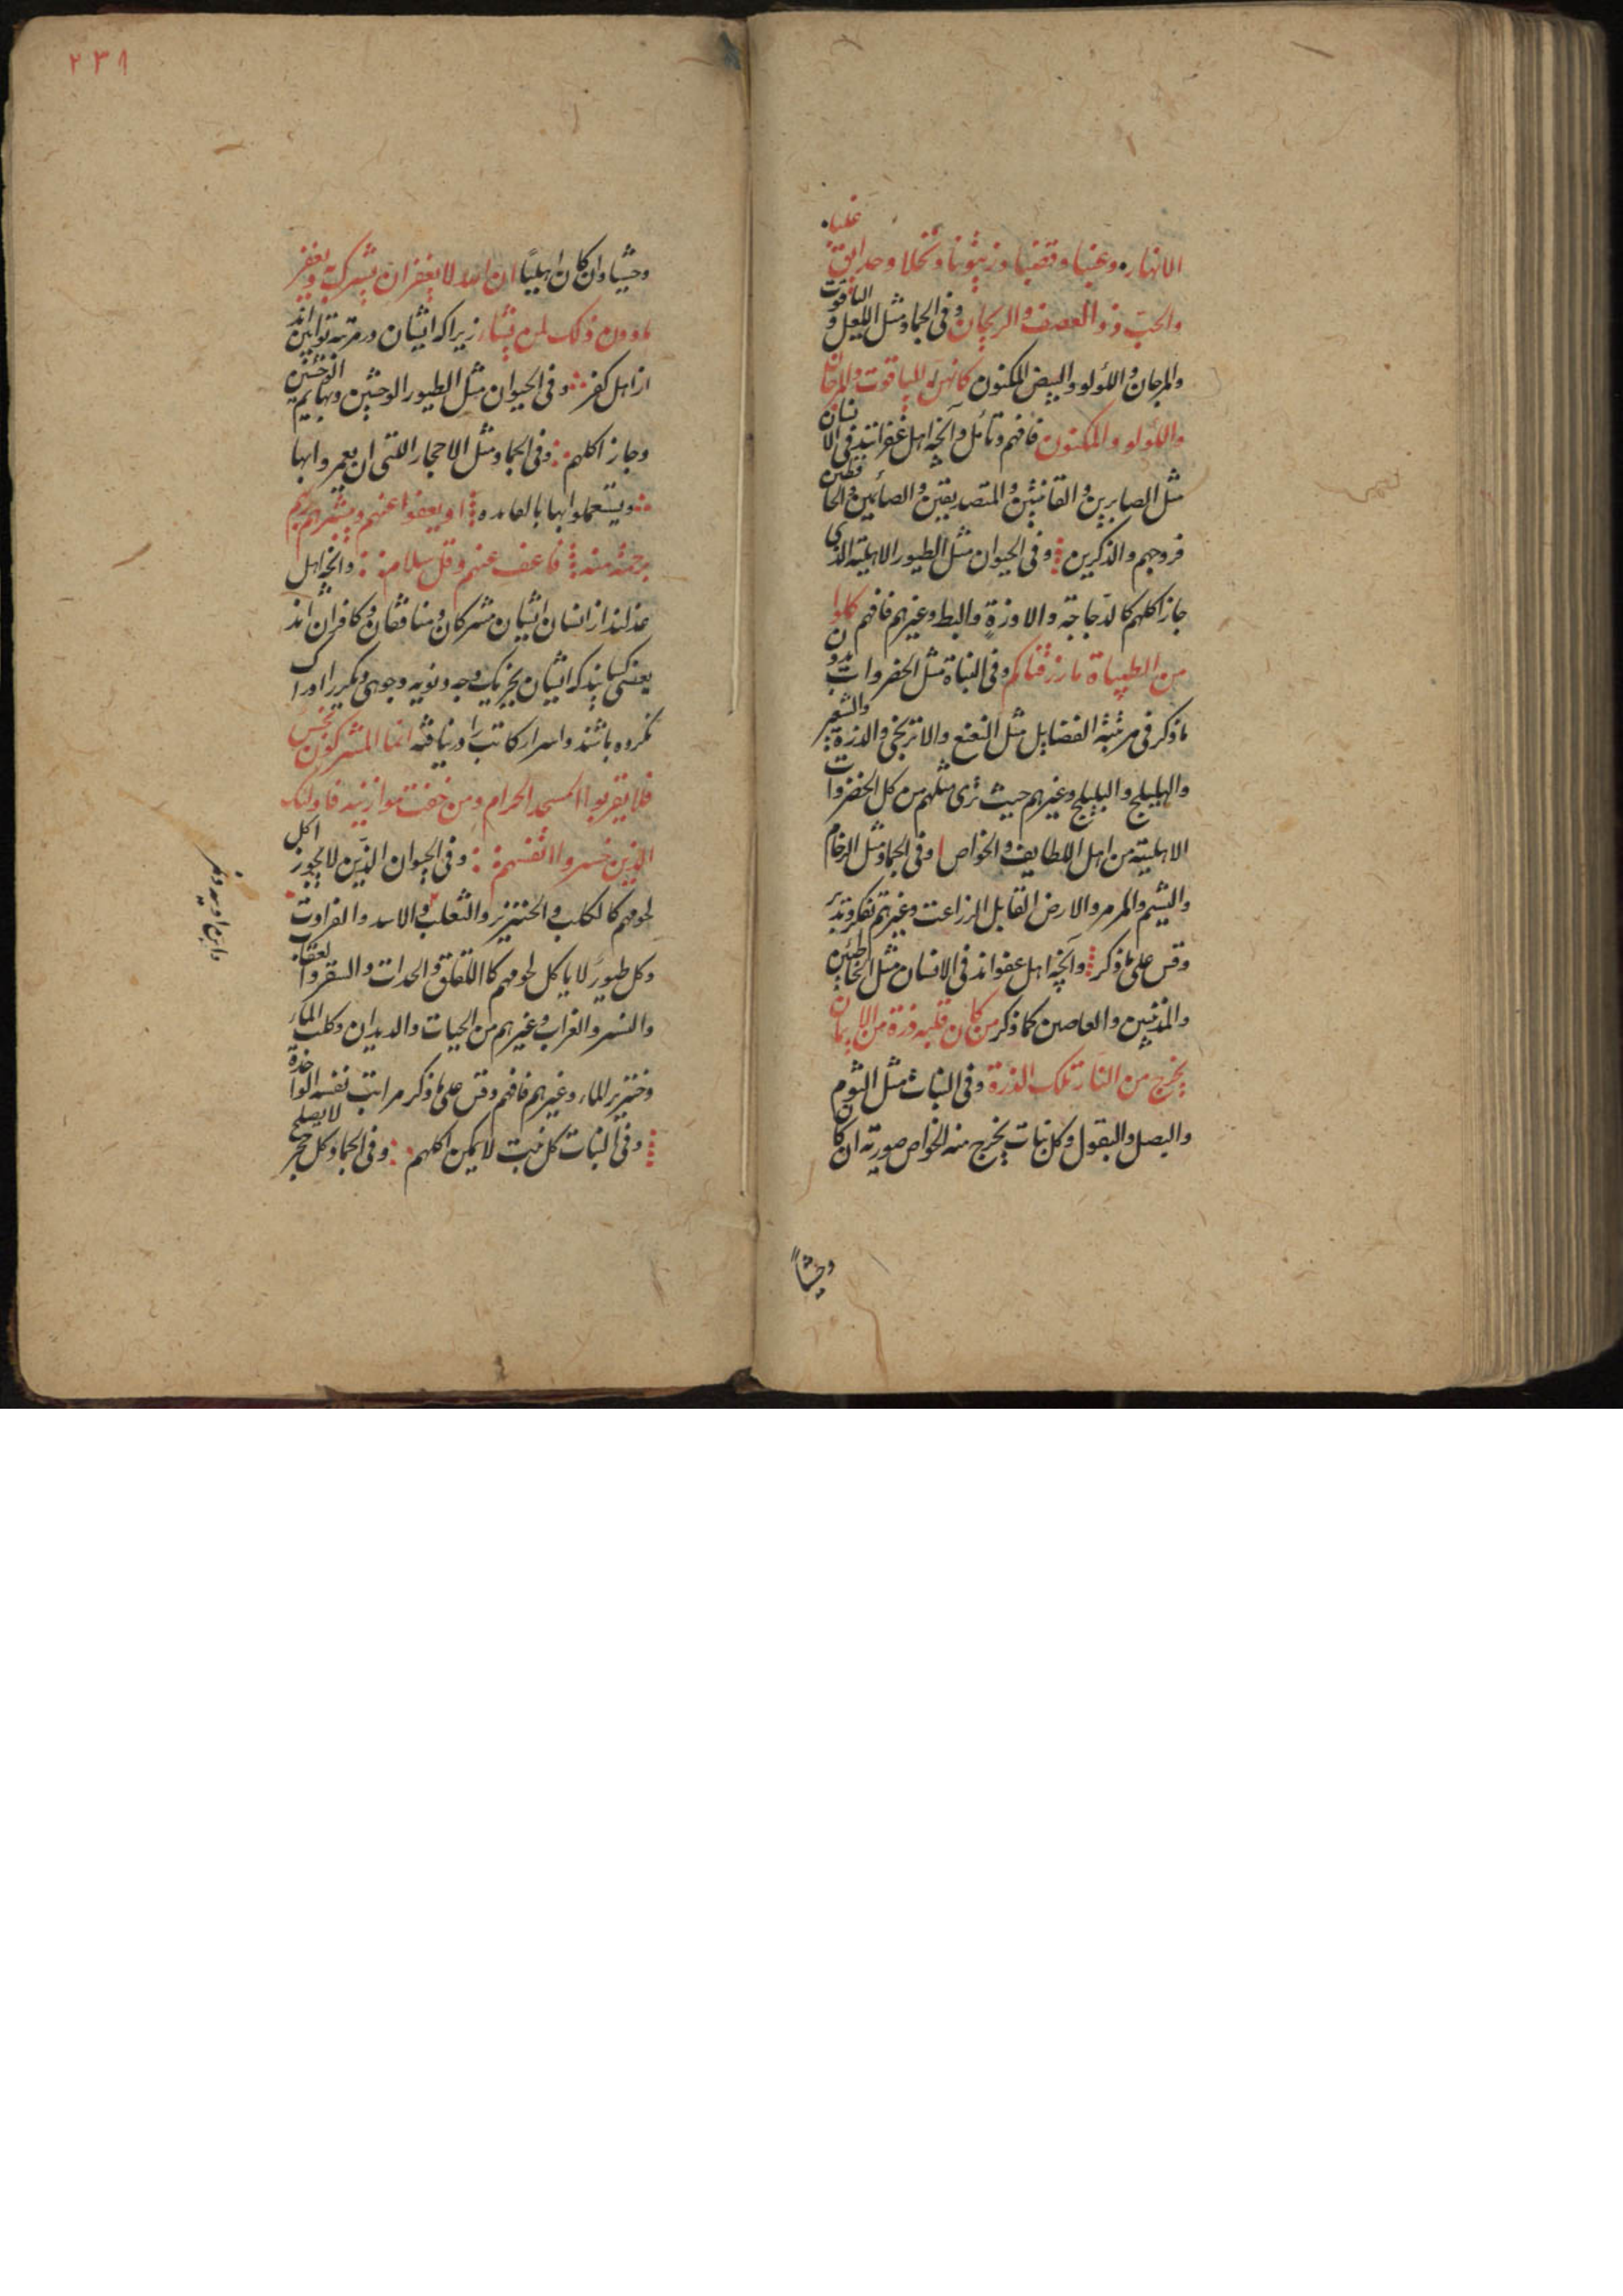 الانهار وعنبا وقضبا وزيتونا ونخلا وحدائق غلبا
والحبّ ذو العصف والريحان وفى الجماد مثل اللعل و الياقوت
والمرجان واللؤلو والبيض المكنون كانهن الياقوت والمرجان
واللؤلو والمكنون فافهم وتأمل وآنچه اهل غفرانند فى الانسان
مثل الصابرين والقانتين والمتصديقين والصائمين والحافظين
فروجهم والذاكرين وفى الحيوان مثل الطيور الاهلية الذى
جاز اكلهم كالدّجاجة والاوزة والبط وغيرهم فافهم كلوا
من الطيباة ما رزقناكم وفى النباة مثل الخضروات بدون
ما ذكر فى مرتبة الفضايل مثل النعنع والاترنجى والذرة والشعير
والهليلج والبليلج وغيرهم حيث ترى مثلهم من كل الخضروات
الاهلية من اهل اللطايف والخواص وفى الجماد مثل الرخام
واليشم والمرمر والارض القابل الزراعت وغيرهم تفكر وتدبر
وقس على ما ذكر وآنچه اهل عفواند فى الانسان مثل الخاطئين
والمذنبين والعاصين كما ذكر من كان قلبه ذرة من الايمان
يخرج من النار تلك الذرة وفى النبات مثل الثوم
والبصل والبقول وكل نبات يخرج منه الخواص صورته ان كان
وحشياً
٢٣٨
وحشيا وان كان اهليًا ان الله لا يغفر ان يشرك به ويغفر
ما دون ذلك لمن يشاء زيرا كه ايشان در مرتبه توابين اند
از اهل كفر وفى الحيوان مثل الطيور الوحشين وبهايم الوحشين
وجاز اكلهم وفى الجماد مثل الاحجار اللتى ان يعمروا بها
ويستعملوا بها بالفايده او يعفوا عنهم ويبشرهم ربهم
برحمة منه فاعف عنهم وقل سلام وآنچه اهل
عذابند از انسان ايشان مشركان ومنافقان وكافران اند
يعنى كسانيد كه ايشان بجز يك وجه دنويه وجوهى ديكر را ادراك
نكروه باشند واسرار كاتب را در نيافته انما المشركون نجس
فلا يقربوا المسجد الحرام ومن خفت موازينه فاولئك
الذين خسروا انفسهم وفى الحيوان الذين لا يجوز اكل
لحومهم كالكلب والخنزير والثعلب والاسد والفراوت
وكل طيور لا ياكل لحومهم كاللقلق والحدات والسقر والعقاب
والنسر والغراب وغيرهم من الحيات والديدان وكلب الماء
وخنزير الماء وغيرهم فافهم وقس على ما ذكر مراتب نفسه الواحدة
وفى النبات كل نبت لا يمكن اكلهم وفى الجماد كل حجر لا يصلح